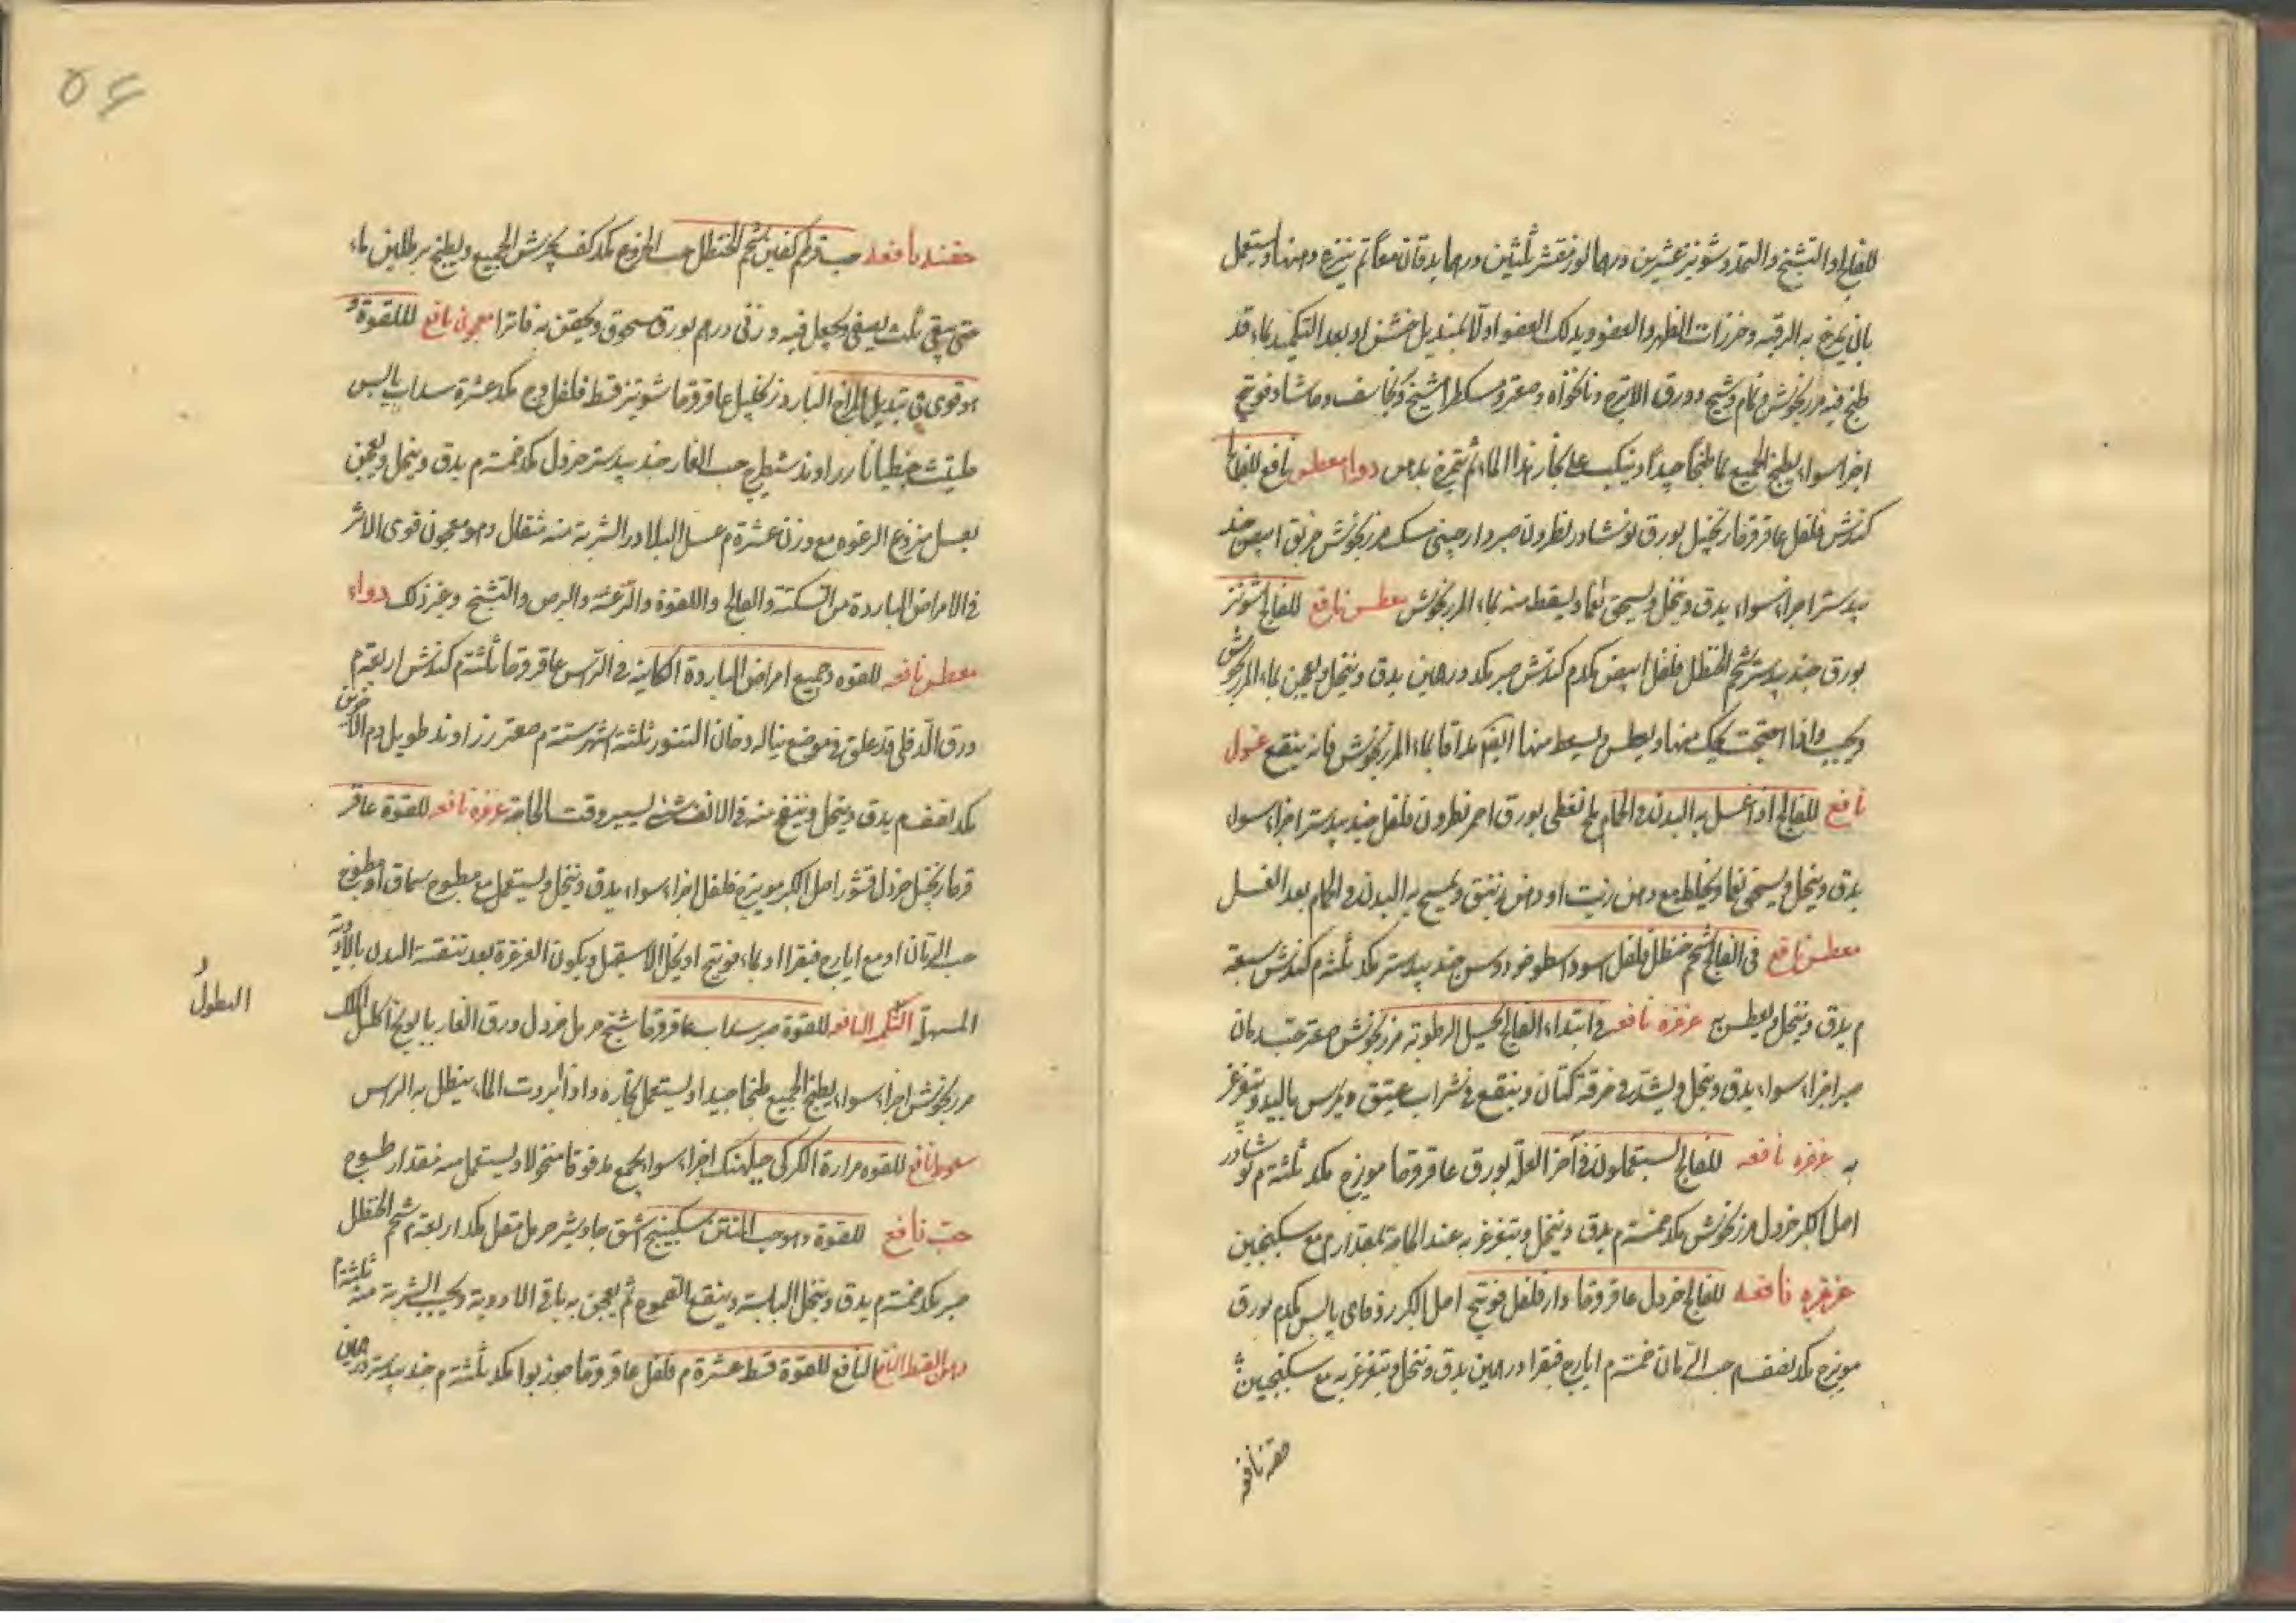 للفالج او التشنج والتمدد شونيز عشرين درهما لوز مقشر ثلثين درهما يدقان معا ثم ينزع دهنها ويستعمل
بان يمرخ به الرقبه وخرزات الظهر والعضو ويدلك العضو اولا بمنديل خشن او بعد التكميد بماء قد
طبخ فيه مرزنجوش ونمام وشيح وورق الاترج ونانخواه وصعتر ومسكطرامشيع وفوتنج
اجزا سواء يطبخ الجميع بماء طبخا جيدا وينكب على بخار هذا الماء ثم يتمرخ بدهن دواء معطس نافع للفالج
كندش فلفل عاقرقرحا زنجبيل بورق نوشادر نطرون صبر دارچيني مسك مرزنجوش خربق ابيض جند
بيدستر اجزاء سواء يدق وينخل ويسحق نعما ويسقط منه بماء المرزنجوش معطس نافع للفالج شونيز
بورق جند بيدستر شحم الحنظل فلفل ابيض مكد م كندش صبر مكد درهمين يدق وينخل ويعجن بماء المرزنجوش
ويحبب واذا احتجت يحك منها ويعطس ويسعط منها ايضا مدافا بماء المرزنجوش فانه ينفع غسول
نافع للفالج اذا غسل به البدن في الحمام ملح نفطي بورق احمر نطرون فلفل جند بيدستر اجزاء سواء
يدق وينخل ويسحق نعما ويخلط مع دهن زيت او دهن زنبق ويمسح به البدن في الحمام بعد الغسل
معطس نافع في الفالج شحم حنظل فلفل اسود اسطوخودوس جند بيدستر مكد ثلثة م كندش سبعة
م يدق وينخل ويعطس به غرغره نافعه في ابتداء الفالج لتحيل الرطوبة مرزنجوش صعتر حب رمان
صبر اجزاء سواء يدق وينخل ويشد في خرقة كتان وينقع في شراب عتيق ويمرس باليد ويتغرغر
به غرغره نافعه للفالج يستعملونه في آخر العلة بورق عاقرقرحا مويزج مكد ثلثة م نوشادر
اصل الكبر خردل مرزنجوش مكد خمسة م يدق وينخل ويتغرغر به عند الحاجة بمقدار م مع سكنجبين
غرغره نافعه للفالج خردل عاقرقرحا دار فلفل فوتنج اصل الكبر زوفاى يابس مكد م بورق
مويزج مكد نصف م حب الرمان خمسة م ايارج فيقرا درهمين يدق وينخل ويتغرغر به مع سكنجبين
حقنه نافعه
٥٤
حقنه نافعه حب قرطم كفين شحم الحنظل حب الخروع مكد كف يجرش الجميع ويطبخ برطلين ماء
حتى يبقى ثلث يصفى ويجعل فيه وزن درهم بورق مسحوق ويحقن به فاترا معجون نافع لللقوة و
هو قوى في تبديل المزاج البارد زنجبيل عاقرقرحا شونيز قسط فلفل وج مكد عشرة سداب يابس
حلتيت جنطيانا زراوند شيطرج حب الغار جند بيدستر خردل مكد خمسة م يدق وينخل ويعجن
بعسل منزوع الرغوه مع وزن عشرة م عسل البلادر الشربة منه مثقال وهو معجون قوى الاثر
في الامراض الباردة من السكتة والفالج واللقوة والرعشه والبرص والتشنج وغير ذلك دواء
معطس نافعه للقوه وجميع امراض الباردة الكاينة في الراس عاقرقرحا ثلثة م كندش اربعة م
ورق الدفلى قد علق في موضع يناله دخان التنور ثلثة اشهر ستة م صعتر زراوند طويل دم الاخوين
مكد نصف م يدق وينخل وينفخ منه في الانف شئ يسير وقت الحاجة غرغره نافعه للقوة عاقر
قرحا زنجبيل خردل قشور اصل الكبر مويزج فلفل اجزاء سواء يدق وينخل ويستعمل مع مطبوخ سماق او مطبوخ
حب الرمان او مع ايارج فيقرا او بماء فوتنج او بخل الاسقيل ويكون الغرغرة بعد تنقية البدن بالادوية
المسهلة النافعه للقوة صبر سداب عاقرقرحا شيح حرمل خردل ورق الغار بابونج اكليل الملك
النطول
مرزنجوش اجزاء سواء يطبخ الجميع طبخا جيدا ويستعمل بخاره واذا برد الماء ينطل به الراس
سعوط نافع للقوه مرارة الكركي اجزاء سوا يجمع مدقوقا منخولا ويستعمل منه مقدار طسوج
حب نافع للقوة وهو حب المنتن سكبينج اشق جاوشير حرمل مقل مكد اربعة م شحم الحنظل
صبر مكد خمسة م يدق وينخل اليابسة وينقع الصموغ ثم يعجن به باقي الادوية ويحبب الشربة منه ثلثة م
دهن القسط النافع للقوة قسط عشرة م فلفل عاقرقرحا جوزبوا مكد ثلثة م جند بيدستر درهمين